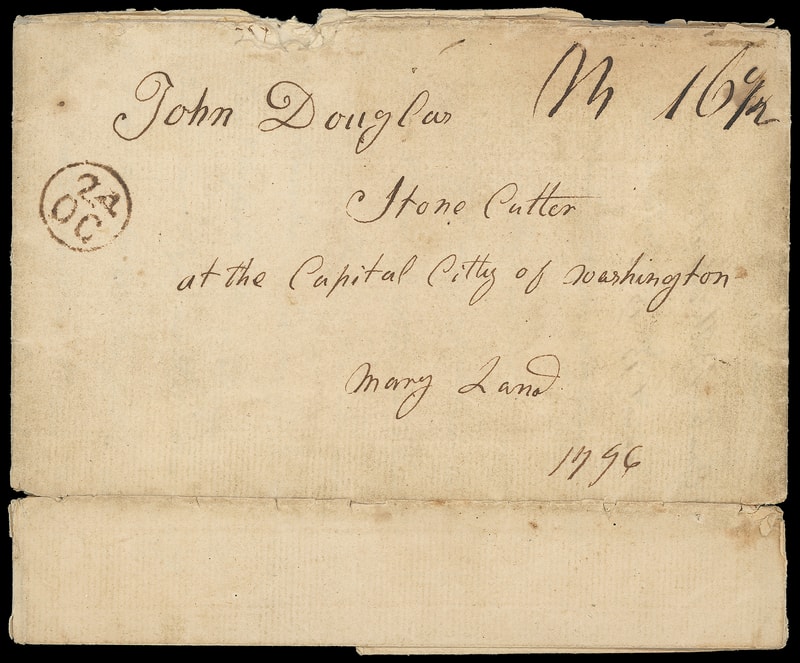 John Douglas
Stone Cutter
at the Capital Citty of Washington
Mary Land
1796
24
OC